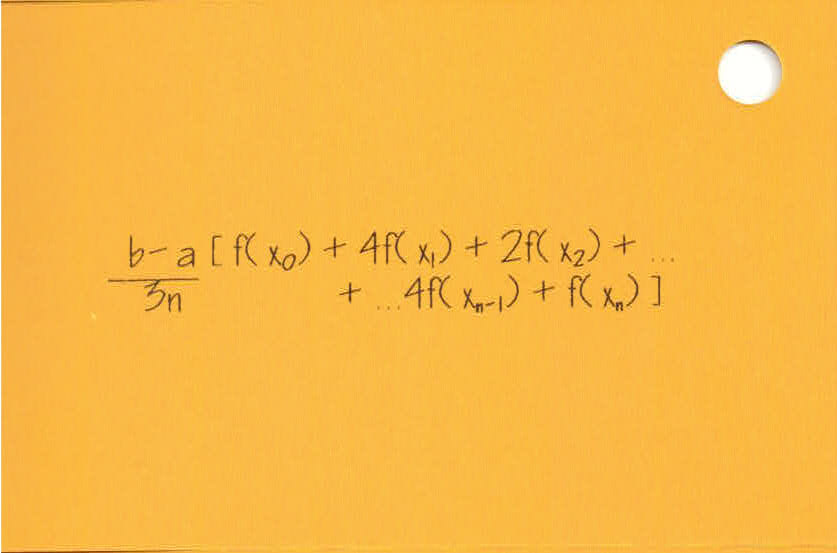 b-a [ f( x₀) + 4f( x₁) + 2f( x₂) + ...
3n + ...4f( xₙ₋₁) + f( xₙ) ]